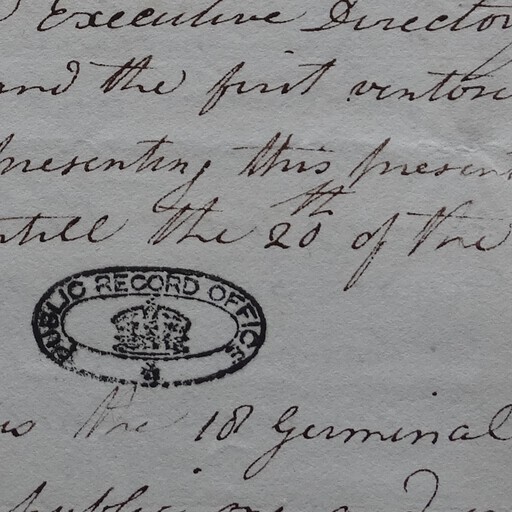 Executive Director
and the first ventose
presenting this present
still the 20th of the
PUBLIC RECORD OFFICE
the 18 Germinal